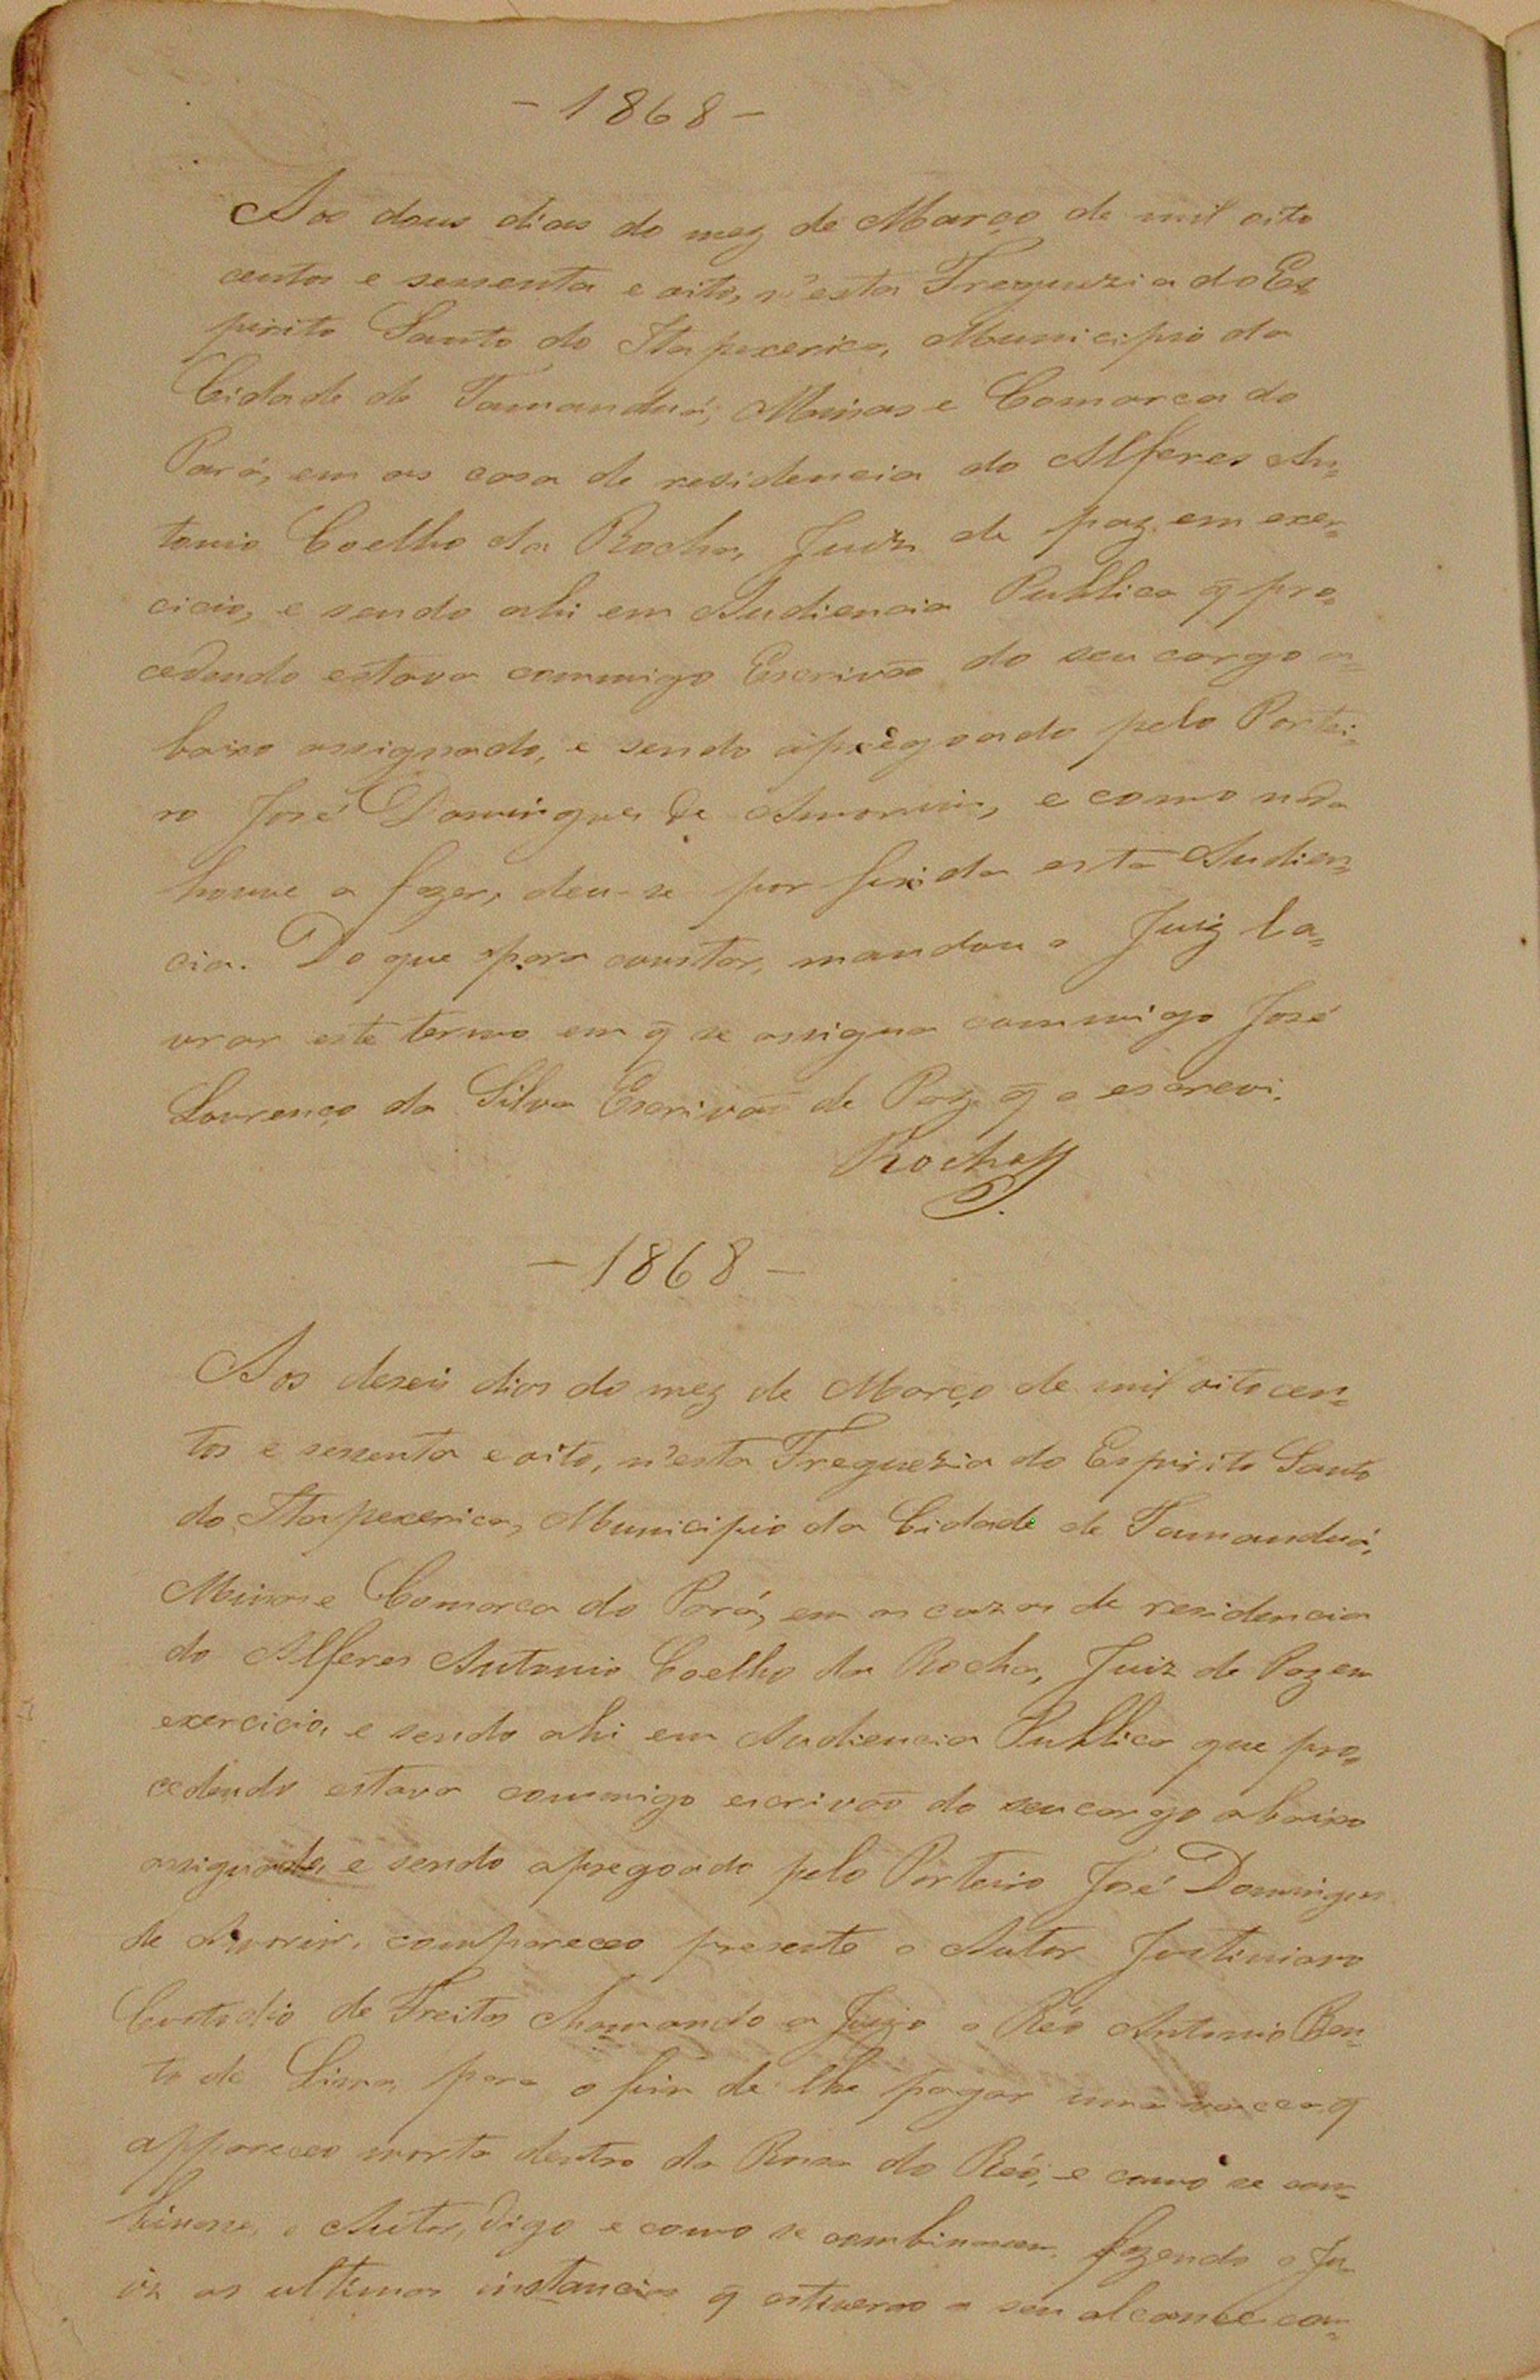 - 1868 -
Aos dous dias do mez de Março de mil oito
centos e sessenta e oito, n'esta Freguezia do Es
pirito Santo do Itapexerica, Municipio da
Cidade de Tamanduá, Minas e Comarca do
Pará, em as casa de residencia do Alferes An=
tonio Coelho da Rocha, Juiz de paz em exer=
cicio, e sendo ahi em Audiencia Publica q̃ pro=
cedendo estava commigo Escrivão do seu cargo a=
baixo assignado, e sendo apregoado pelo Portei=
ro José Domingues de Amorim, e como nada
houve a fazer, deu-se por finda esta Audien=
cia. Do que para constar, mandou o Juiz la=
vrar este termo em q̃ se assigna commigo José
Lourenço da Silva Escrivão de Paz q̃ o escrevi.
Rocha
- 1868 -
Aos deseis dias do mez de Março de mil oito cen=
tos e sessenta e oito, n'esta Freguezia do Espirito Santo
do Itapexerica, Municipio da Cidade de Tamanduá,
Minas e Comarca do Pará, em as cazas de residencia
do Alferes Antonio Coelho da Rocha, Juiz de Paz em
exercicio, e sendo ahi em Audiencia Publica que pro=
cedendo estava commigo escrivão do seu cargo abaixo
assignado, e sendo apregoado pelo Porteiro José Domingues
de Amorim, compareceo presente o Autor Justiniano
Custodio de Freitas chamando a Juizo o Réo Antonio Ben
to de Lima, para o fim de lhe pagar uma vacca q
appareceo morta dentro da Rossa do Réo, e como se com=
binasse, o Autor, digo e como se combinarão, fazendo o Ju
iz as ultimas instancias q̃ estiverão a seu alcance con=